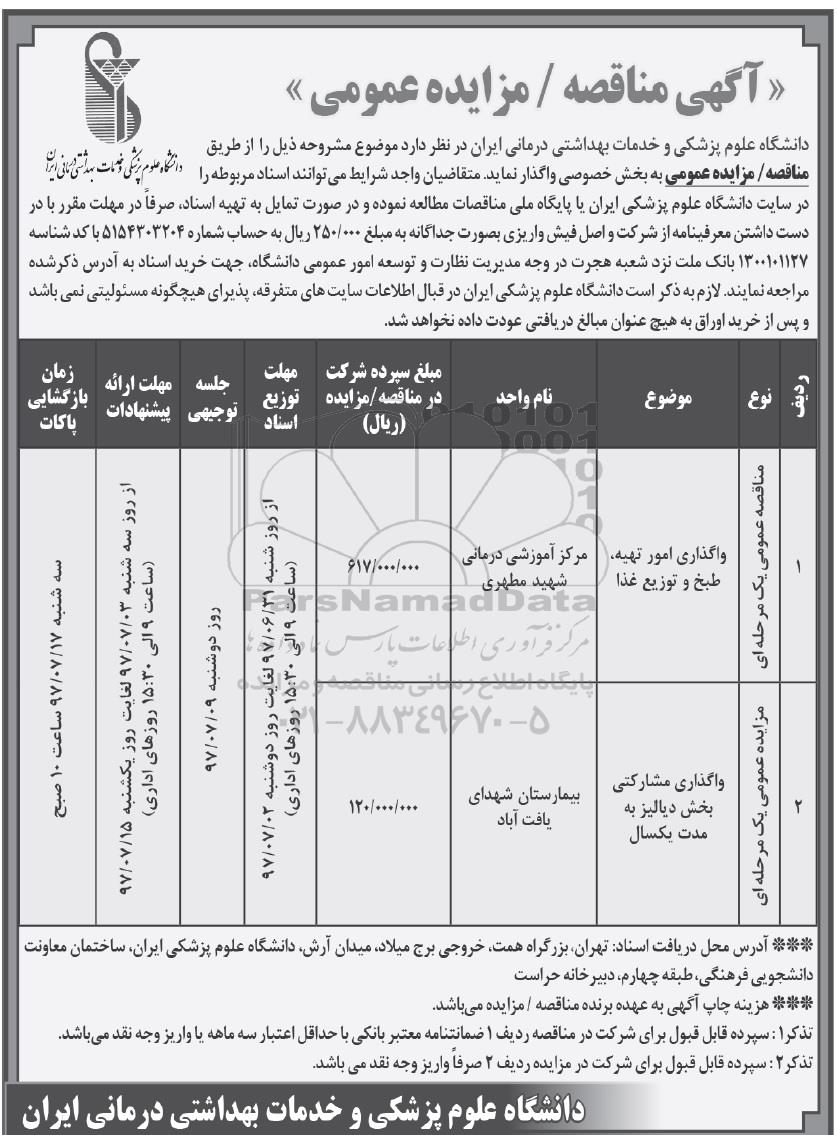 « آگهی مناقصه / مزایده عمومی »
دانشگاه علوم پزشکی و خدمات بهداشتی درمانی ایران
دانشگاه علوم پزشکی و خدمات بهداشتی درمانی ایران در نظر دارد موضوع مشروحه ذیل را از طریق
مناقصه/ مزایده عمومی به بخش خصوصی واگذار نماید. متقاضیان واجد شرایط می‌توانند اسناد مربوطه را
در سایت دانشگاه علوم پزشکی ایران یا پایگاه ملی مناقصات مطالعه نموده و در صورت تمایل به تهیه اسناد، صرفاً در مهلت مقرر با در
دست داشتن معرفینامه از شرکت و اصل فیش واریزی بصورت جداگانه به مبلغ ۲۵۰/۰۰۰ ریال به حساب شماره ۵۱۵۴۳۰۳۲۰۴ با کد شناسه
۱۳۰۰۱۰۱۱۲۷ بانک ملت نزد شعبه هجرت در وجه مدیریت نظارت و توسعه امور عمومی دانشگاه، جهت خرید اسناد به آدرس ذکرشده
مراجعه نمایند. لازم به ذکر است دانشگاه علوم پزشکی ایران در قبال اطلاعات سایت های متفرقه، پذیرای هیچگونه مسئولیتی نمی باشد
و پس از خرید اوراق به هیچ عنوان مبالغ دریافتی عودت داده نخواهد شد.
ردیف
نوع
موضوع
نام واحد
مبلغ سپرده شرکت
در مناقصه/مزایده
(ریال)
مهلت
توزیع
اسناد
جلسه
توجیهی
مهلت ارائه
پیشنهادات
زمان
بازگشایی
پاکات
۱
مناقصه عمومی یک مرحله ای
واگذاری امور تهیه،
طبخ و توزیع غذا
مرکز آموزشی درمانی
شهید مطهری
۶۱۷/۰۰۰/۰۰۰
از روز شنبه ۹۷/۰۶/۳۱ لغایت روز دوشنبه ۹۷/۰۷/۰۲
(ساعت ۹ الی ۱۵:۳۰ روزهای اداری)
روز دوشنبه ۹۷/۰۷/۰۹
از روز سه شنبه ۹۷/۰۷/۰۳ لغایت روز یکشنبه ۹۷/۰۷/۱۵
(ساعت ۹ الی ۱۵:۳۰ روزهای اداری)
سه شنبه ۹۷/۰۷/۱۷ ساعت ۱۰ صبح
۲
مزایده عمومی یک مرحله ای
واگذاری مشارکتی
بخش دیالیز به
مدت یکسال
بیمارستان شهدای
یافت آباد
۱۲۰/۰۰۰/۰۰۰
ParsNamadData
مرکز فرآوری اطلاعات پارس نماد داده ها
پایگاه اطلاع رسانی مناقصه و مزایده
۰۲۱-۸۸۳۴۹۶۷۰-۵
❊❊❊ آدرس محل دریافت اسناد: تهران، بزرگراه همت، خروجی برج میلاد، میدان آرش، دانشگاه علوم پزشکی ایران، ساختمان معاونت
دانشجویی فرهنگی، طبقه چهارم، دبیرخانه حراست
❊❊❊ هزینه چاپ آگهی به عهده برنده مناقصه / مزایده می‌باشد.
تذکر۱: سپرده قابل قبول برای شرکت در مناقصه ردیف ۱ ضمانتنامه معتبر بانکی با حداقل اعتبار سه ماهه یا واریز وجه نقد می‌باشد.
تذکر۲: سپرده قابل قبول برای شرکت در مزایده ردیف ۲ صرفاً واریز وجه نقد می باشد.
دانشگاه علوم پزشکی و خدمات بهداشتی درمانی ایران